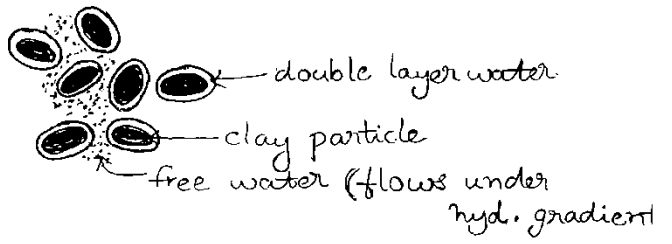 double layer water
clay particle
free water (flows under
hyd. gradient